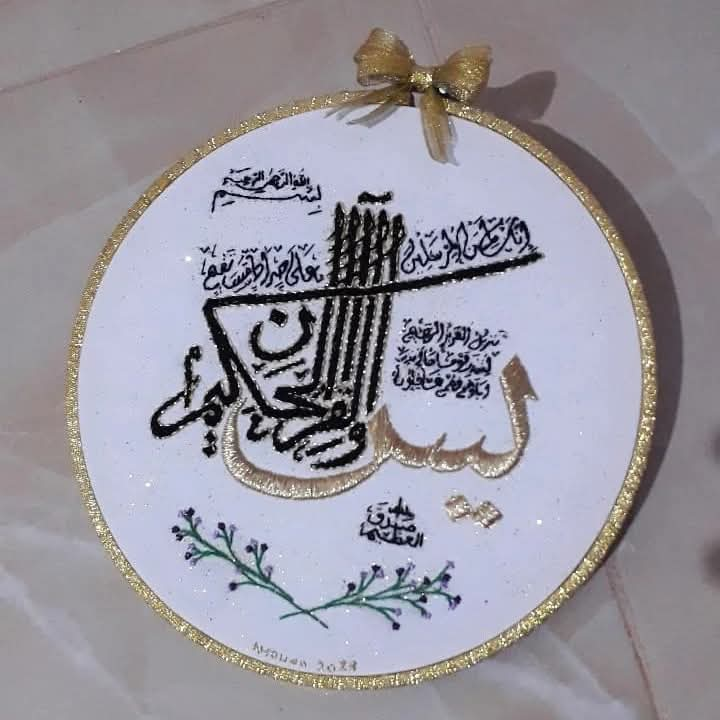 بسم الله الرحمن الرحيم
يس
والقرآن الحكيم
إنك لمن المرسلين
على صراط مستقيم
تنزيل العزيز الرحيم
لتنذر قوما ما أنذر
آباؤهم فهم غافلون
صدق الله
العظيم
2023